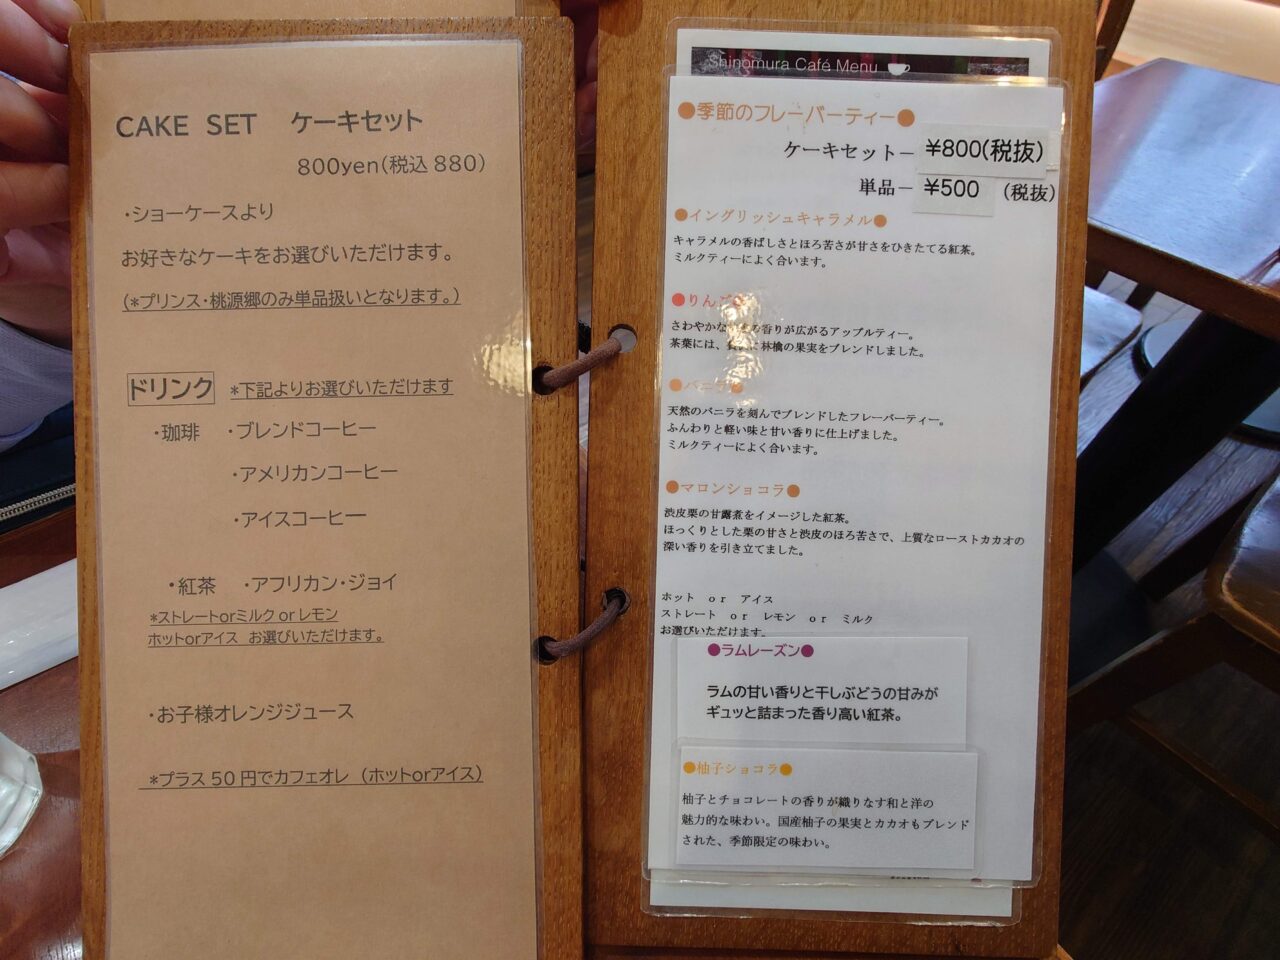 CAKE SET ケーキセット
800yen(税込 880)
・ショーケースより
お好きなケーキをお選びいただけます。
(*プリンス・桃源郷のみ単品扱いとなります。)
ドリンク *下記よりお選びいただけます
・珈琲 ・ブレンドコーヒー
・アメリカンコーヒー
・アイスコーヒー
・紅茶 ・アフリカン・ジョイ
*ストレートorミルク or レモン
ホットorアイス お選びいただけます。
・お子様オレンジジュース
*プラス 50 円でカフェオレ (ホットorアイス)
Shinomura Café Menu
●季節のフレーバーティー●
ケーキセット− ¥800(税抜)
単品− ¥500 (税抜)
●イングリッシュキャラメル●
キャラメルの香ばしさとほろ苦さが甘さをひきたてる紅茶。
ミルクティーによく合います。
●りんご●
さわやかな の香りが広がるアップルティー。
茶葉には、 林檎の果実をブレンドしました。
●バニラ●
天然のバニラを刻んでブレンドしたフレーバーティー。
ふんわりと軽い味と甘い香りに仕上げました。
ミルクティーによく合います。
●マロンショコラ●
渋皮栗の甘露煮をイメージした紅茶。
ほっくりとした栗の甘さと渋皮のほろ苦さで、上質なローストカカオの
深い香りを引き立てました。
ホット or アイス
ストレート or レモン or ミルク
お選びいただけます。
●ラムレーズン●
ラムの甘い香りと干しぶどうの甘みが
ギュッと詰まった香り高い紅茶。
●柚子ショコラ●
柚子とチョコレートの香りが織りなす和と洋の
魅力的な味わい。国産柚子の果実とカカオもブレンド
された、季節限定の味わい。